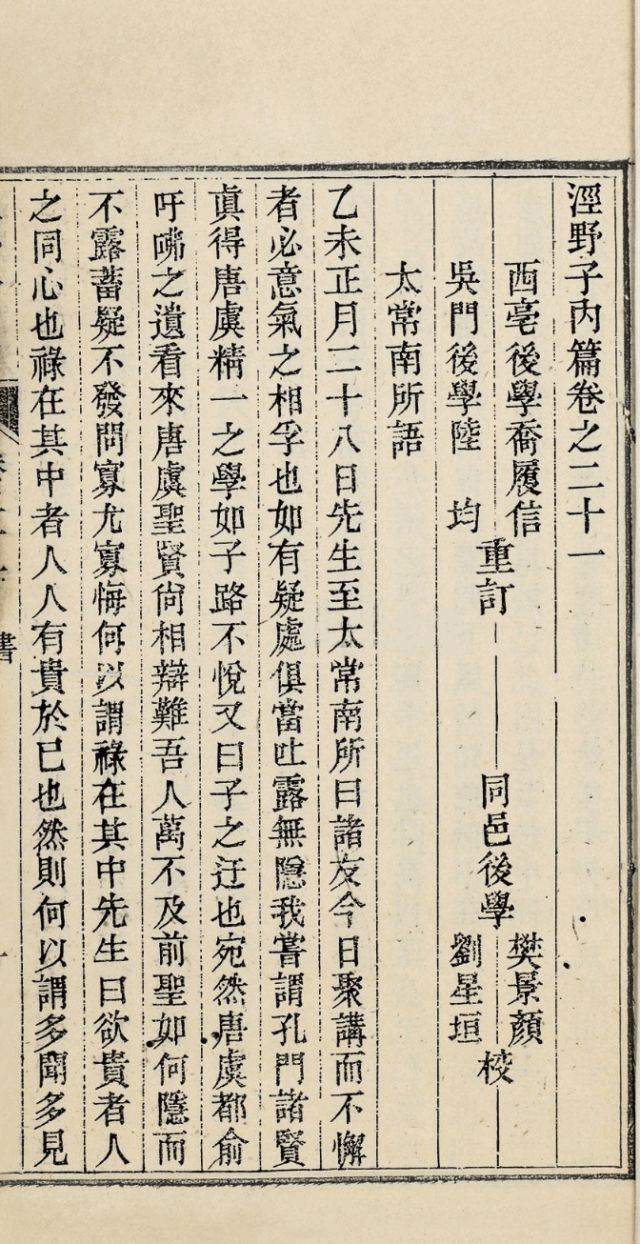 涇野子內篇卷之二十一
西亳後學喬履信
吳門後學陸　均
重訂
同邑後學
樊景顏
劉星垣
校
太常南所語
乙未正月二十八日先生至太常南所曰諸友今日聚講而不懈
者必意氣之相孚也如有疑處俱當吐露無隱我嘗謂孔門諸賢
眞得唐虞精一之學如子路不悅又曰子之迂也宛然唐虞都俞
吁咈之遺看來唐虞聖賢尙相辯難吾人萬不及前聖如何隱而
不露蓄疑不發問寡尤寡悔何以謂祿在其中先生曰欲貴者人
之同心也祿在其中者人人有貴於已也然則何以謂多聞多見